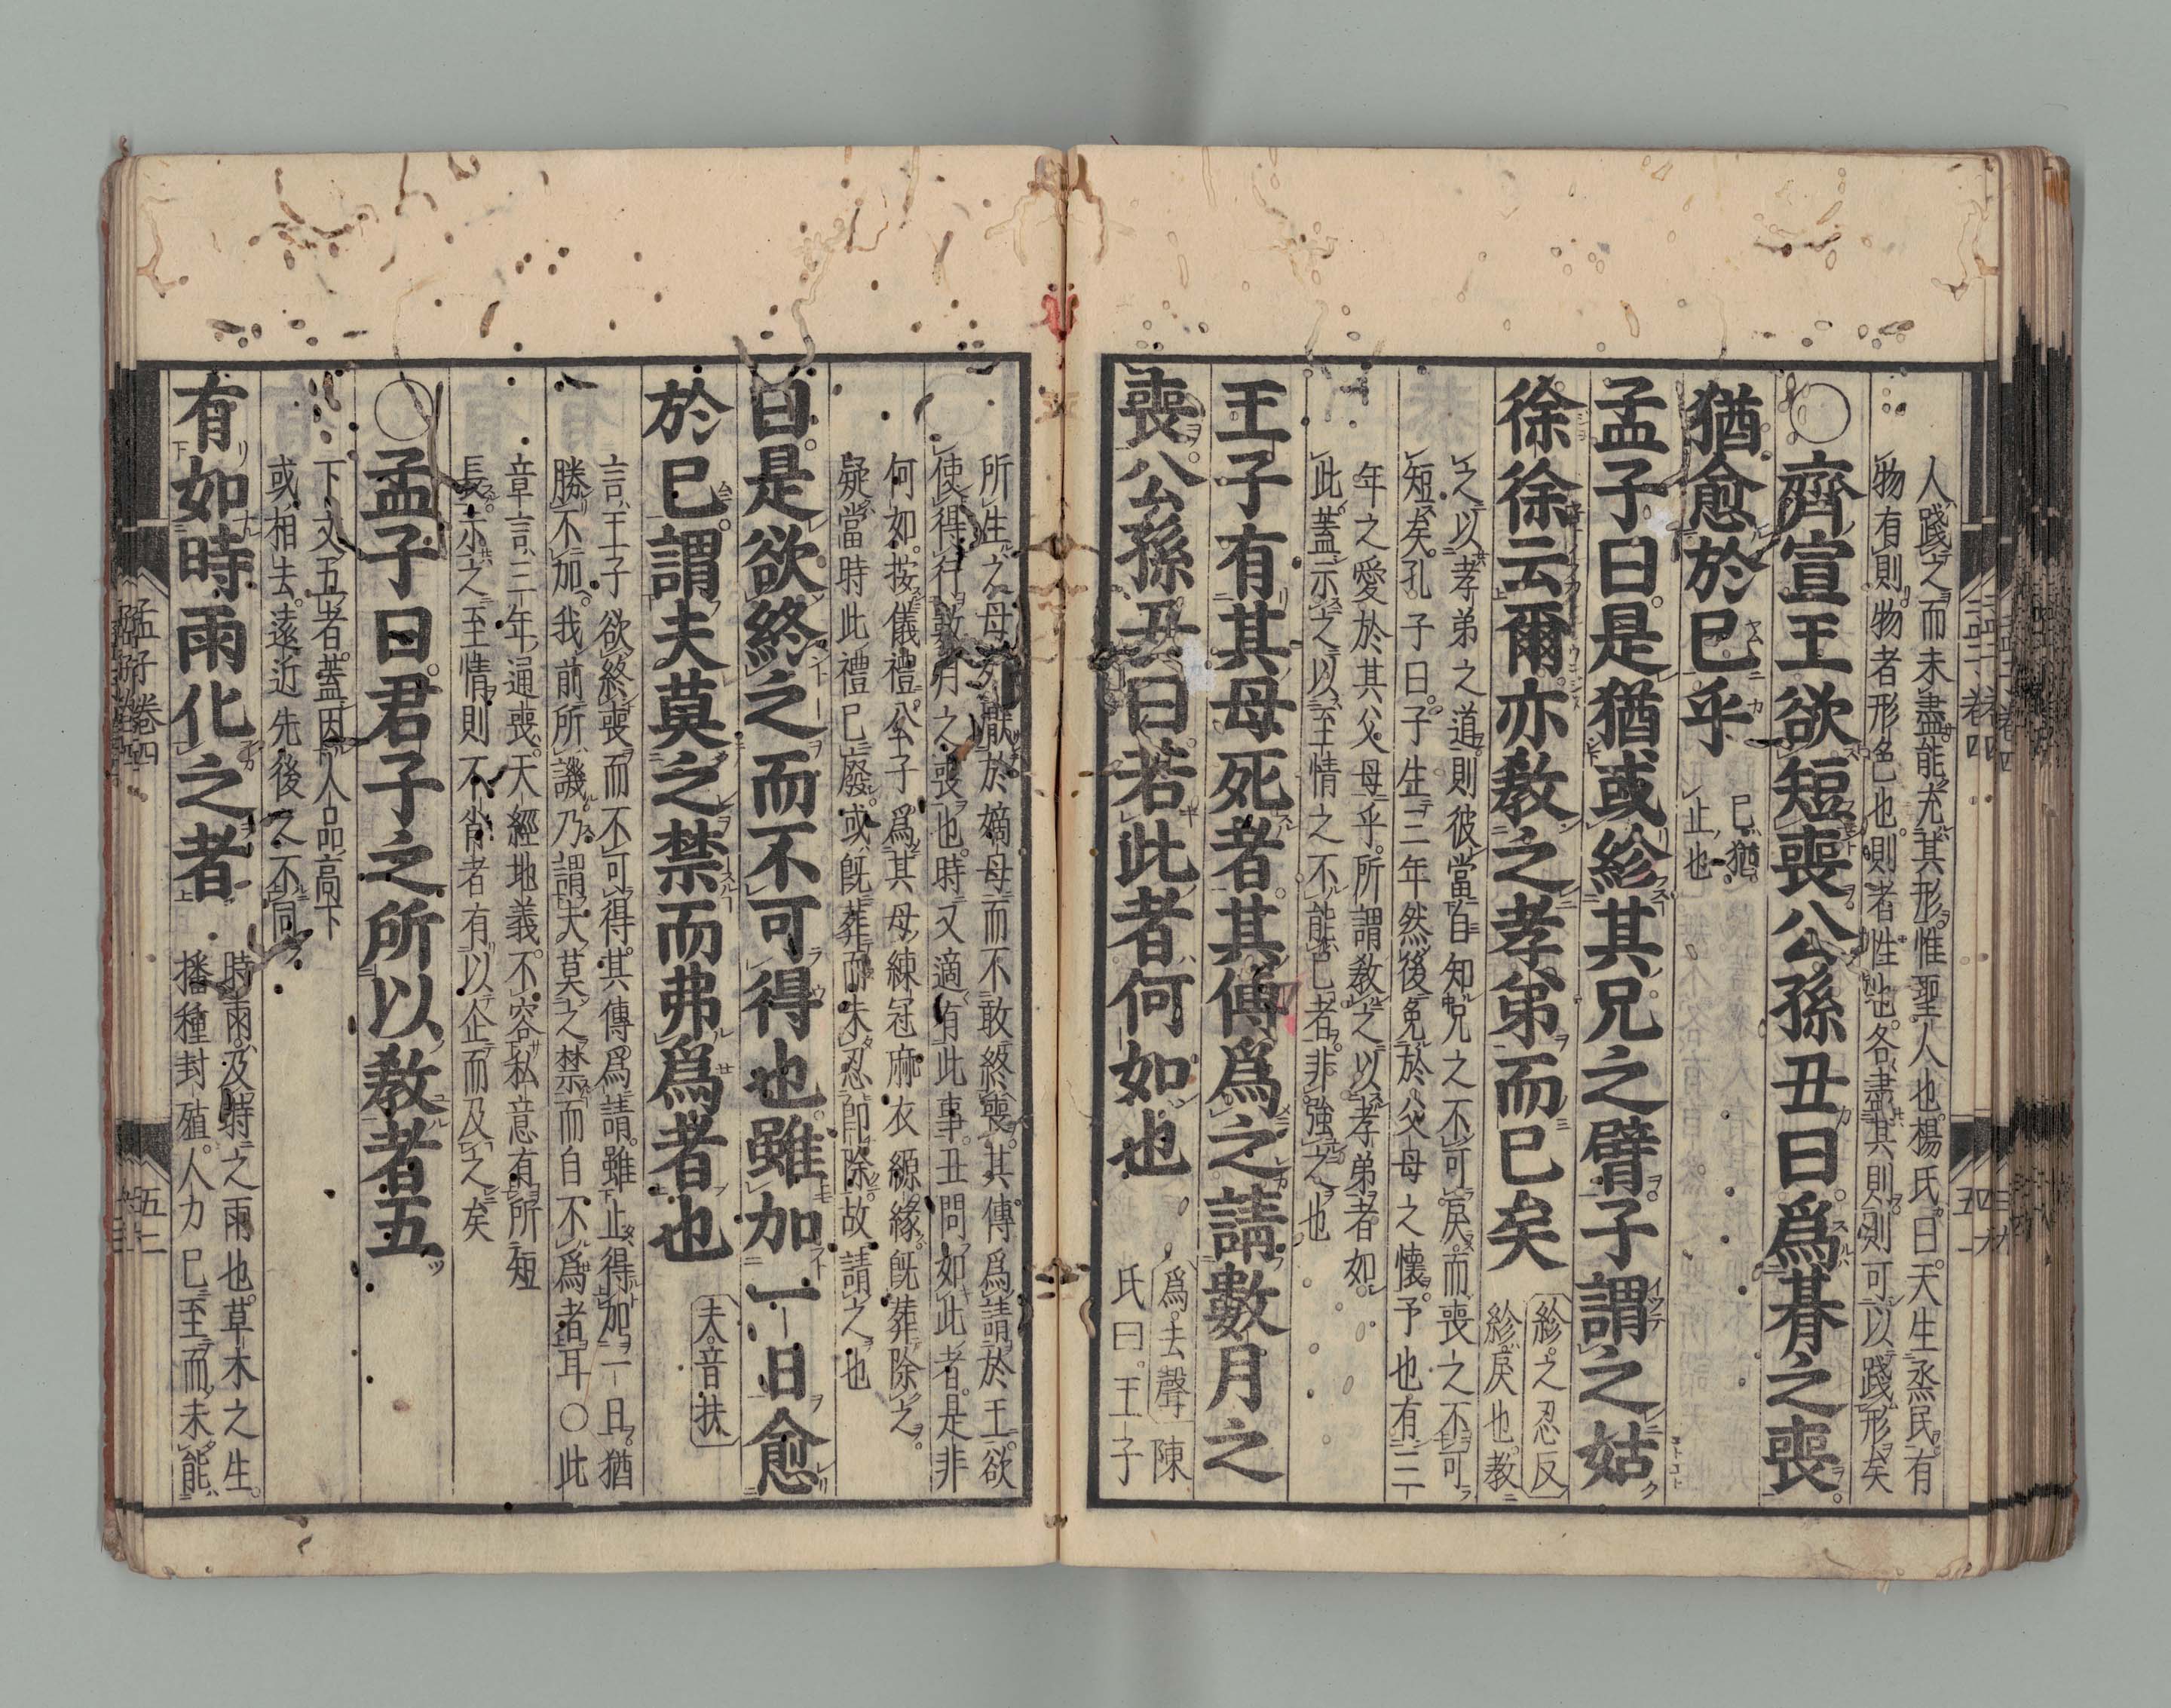 人踐之而未盡能充其形惟聖人也楊氏曰天生烝民有
物有則物者形色也則者性也各盡其則則可以踐形矣
○齊宣王欲短喪公孫丑曰爲朞之喪
猶愈於已乎
已猶
止也
孟子曰是猶或紾其兄之臂子謂之姑
徐徐云爾亦教之孝弟而已矣
紾之忍反
紾戾也教
之以孝弟之道則彼當自知兄之不可戾而喪之不可
短矣孔子曰子生三年然後免於父母之懷予也有三
年之愛於其父母乎所謂教之以孝弟者如
此蓋示之以至情之不能已者非強之也
王子有其母死者其傅爲之請數月之
喪公孫丑曰若此者何如也
爲去聲陳
氏曰王子
所生之母死厭於嫡母而不敢終喪其傅爲請於王欲
使得行數月之喪也時又適有此事丑問如此者是非
何如按儀禮公子爲其母練冠麻衣縓緣既葬除之
疑當時此禮已廢或既葬而未忍即除故請之也
曰是欲終之而不可得也雖加一日愈
於已謂夫莫之禁而弗爲者也
夫音扶
言王子欲終喪而不可得其傅爲請雖止得加一日猶
勝不加我前所譏乃謂夫莫之禁而自不爲者耳○此
章言三年通喪天經地義不容私意有所短
長示之至情則不肖者有以企而及之矣
○孟子曰君子之所以教者五
下文五者蓋因人品高下
或相去遠近先後之不同
有如時雨化之者
時雨及時之雨也草木之生
播種封殖人力已至而未能
孟子卷四
五十二